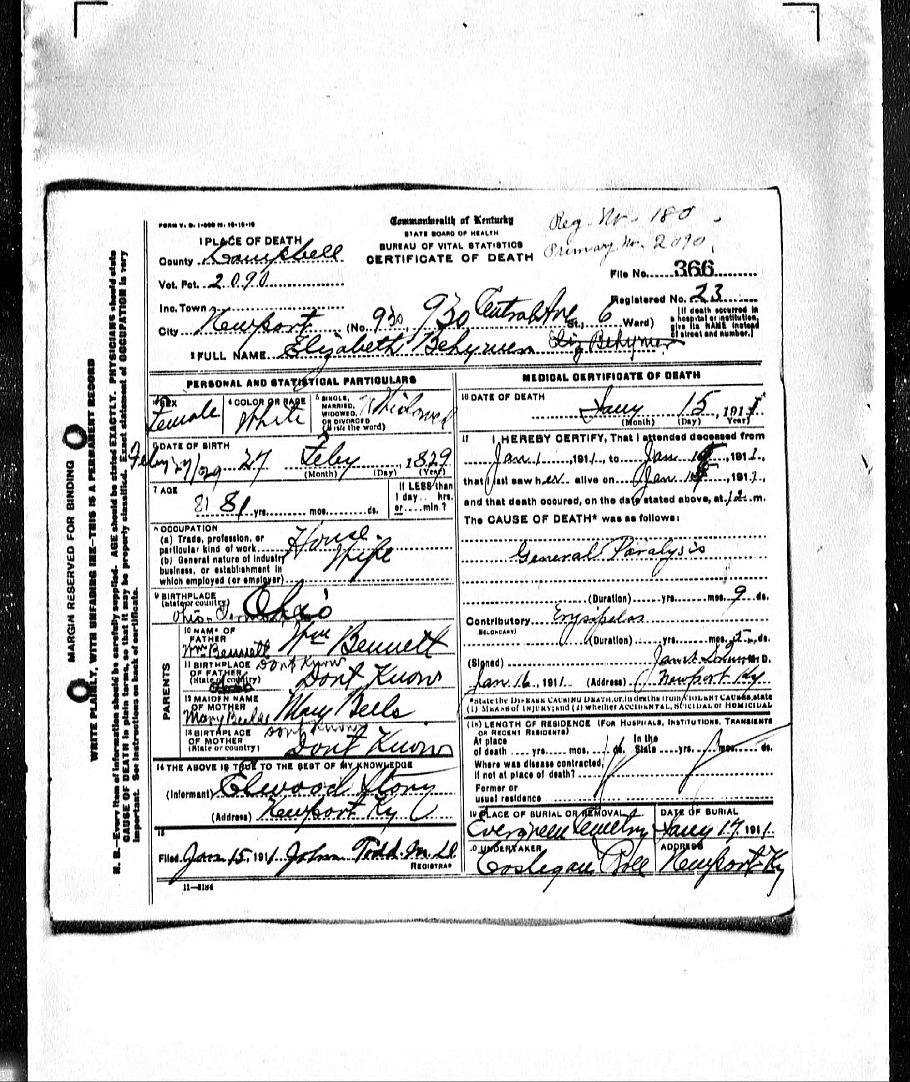 FORM V. S. 1-
Commonwealth of Kentucky
STATE BOARD OF HEALTH
BUREAU OF VITAL STATISTICS
CERTIFICATE OF DEATH
Reg. No. 180
Primary No. 2090
File No. 366
Registered No. 23
[If death occurred in a hospital or institution, give its NAME instead of street and number.]
1 PLACE OF DEATH
County Campbell
Vot. Pct. 2090
Inc. Town
City Newport (No. 930 930 Central Ave St., 6 Ward)
2 FULL NAME Elizabeth Behymer Liz Behymer
PERSONAL AND STATISTICAL PARTICULARS
3 SEX Female
4 COLOR OR RACE White
5 SINGLE, MARRIED, WIDOWED, OR DIVORCED (Write the word) Widowed
6 DATE OF BIRTH
Feby 27/29 27 Feby 1829
(Month) (Day) (Year)
7 AGE
81 81 yrs. mos. ds.
If LESS than 1 day hrs. or min?
8 OCCUPATION
(a) Trade, profession, or particular kind of work House Wife
(b) General nature of industry business, or establishment in which employed (or employer)
9 BIRTHPLACE (State or country) Ohio
Ohio
PARENTS
10 NAME OF FATHER Wm Bennett Wm Bennett
11 BIRTHPLACE OF FATHER (State or country) Dont Know Dont Know
12 MAIDEN NAME OF MOTHER Mary Beels Mary Beels
13 BIRTHPLACE OF MOTHER (State or country) Dont Know Dont Know
14 THE ABOVE IS TRUE TO THE BEST OF MY KNOWLEDGE
(Informant) Elwood Story
(Address) Newport Ky
15
Filed Jan 15, 1911 John Todd M.D.
REGISTRAR
11-3184
MEDICAL CERTIFICATE OF DEATH
16 DATE OF DEATH
Jany 15, 1911
(Month) (Day) (Year)
17 I HEREBY CERTIFY, That I attended deceased from
Jan 1, 1911, to Jan 15, 1911,
that I last saw her alive on Jan 15, 1911,
and that death occured, on the date stated above, at 12 m.
The CAUSE OF DEATH* was as follows:
General Paralysis
(Duration) yrs. mos. 9 ds.
Contributory Erysipelas
(SECONDARY)
(Duration) yrs. mos. 5 ds.
(Signed) M.D.
Jan 16, 1911 (Address) Newport Ky
*State the DISEASE CAUSING DEATH, or, in deaths from VIOLENT CAUSES, state (1) MEANS OF INJURY; and (2) whether ACCIDENTAL, SUICIDAL or HOMICIDAL
18 LENGTH OF RESIDENCE (FOR HOSPITALS, INSTITUTIONS, TRANSIENTS OR RECENT RESIDENTS)
At place of death yrs. mos. ds. In the State yrs. mos. ds.
Where was disease contracted, if not at place of death?
Former or usual residence
19 PLACE OF BURIAL OR REMOVAL Evergreen Cemetry
DATE OF BURIAL Jany 17, 1911
20 UNDERTAKER
ADDRESS Newport Ky
MARGIN RESERVED FOR BINDING
WRITE PLAINLY, WITH UNFADING INK—THIS IS A PERMANENT RECORD
N. B.—Every item of information should be carefully supplied. AGE should be stated EXACTLY. PHYSICIANS should state CAUSE OF DEATH in plain terms, so that it may be properly classified. Exact statement of OCCUPATION is very important. See instructions on back of certificate.